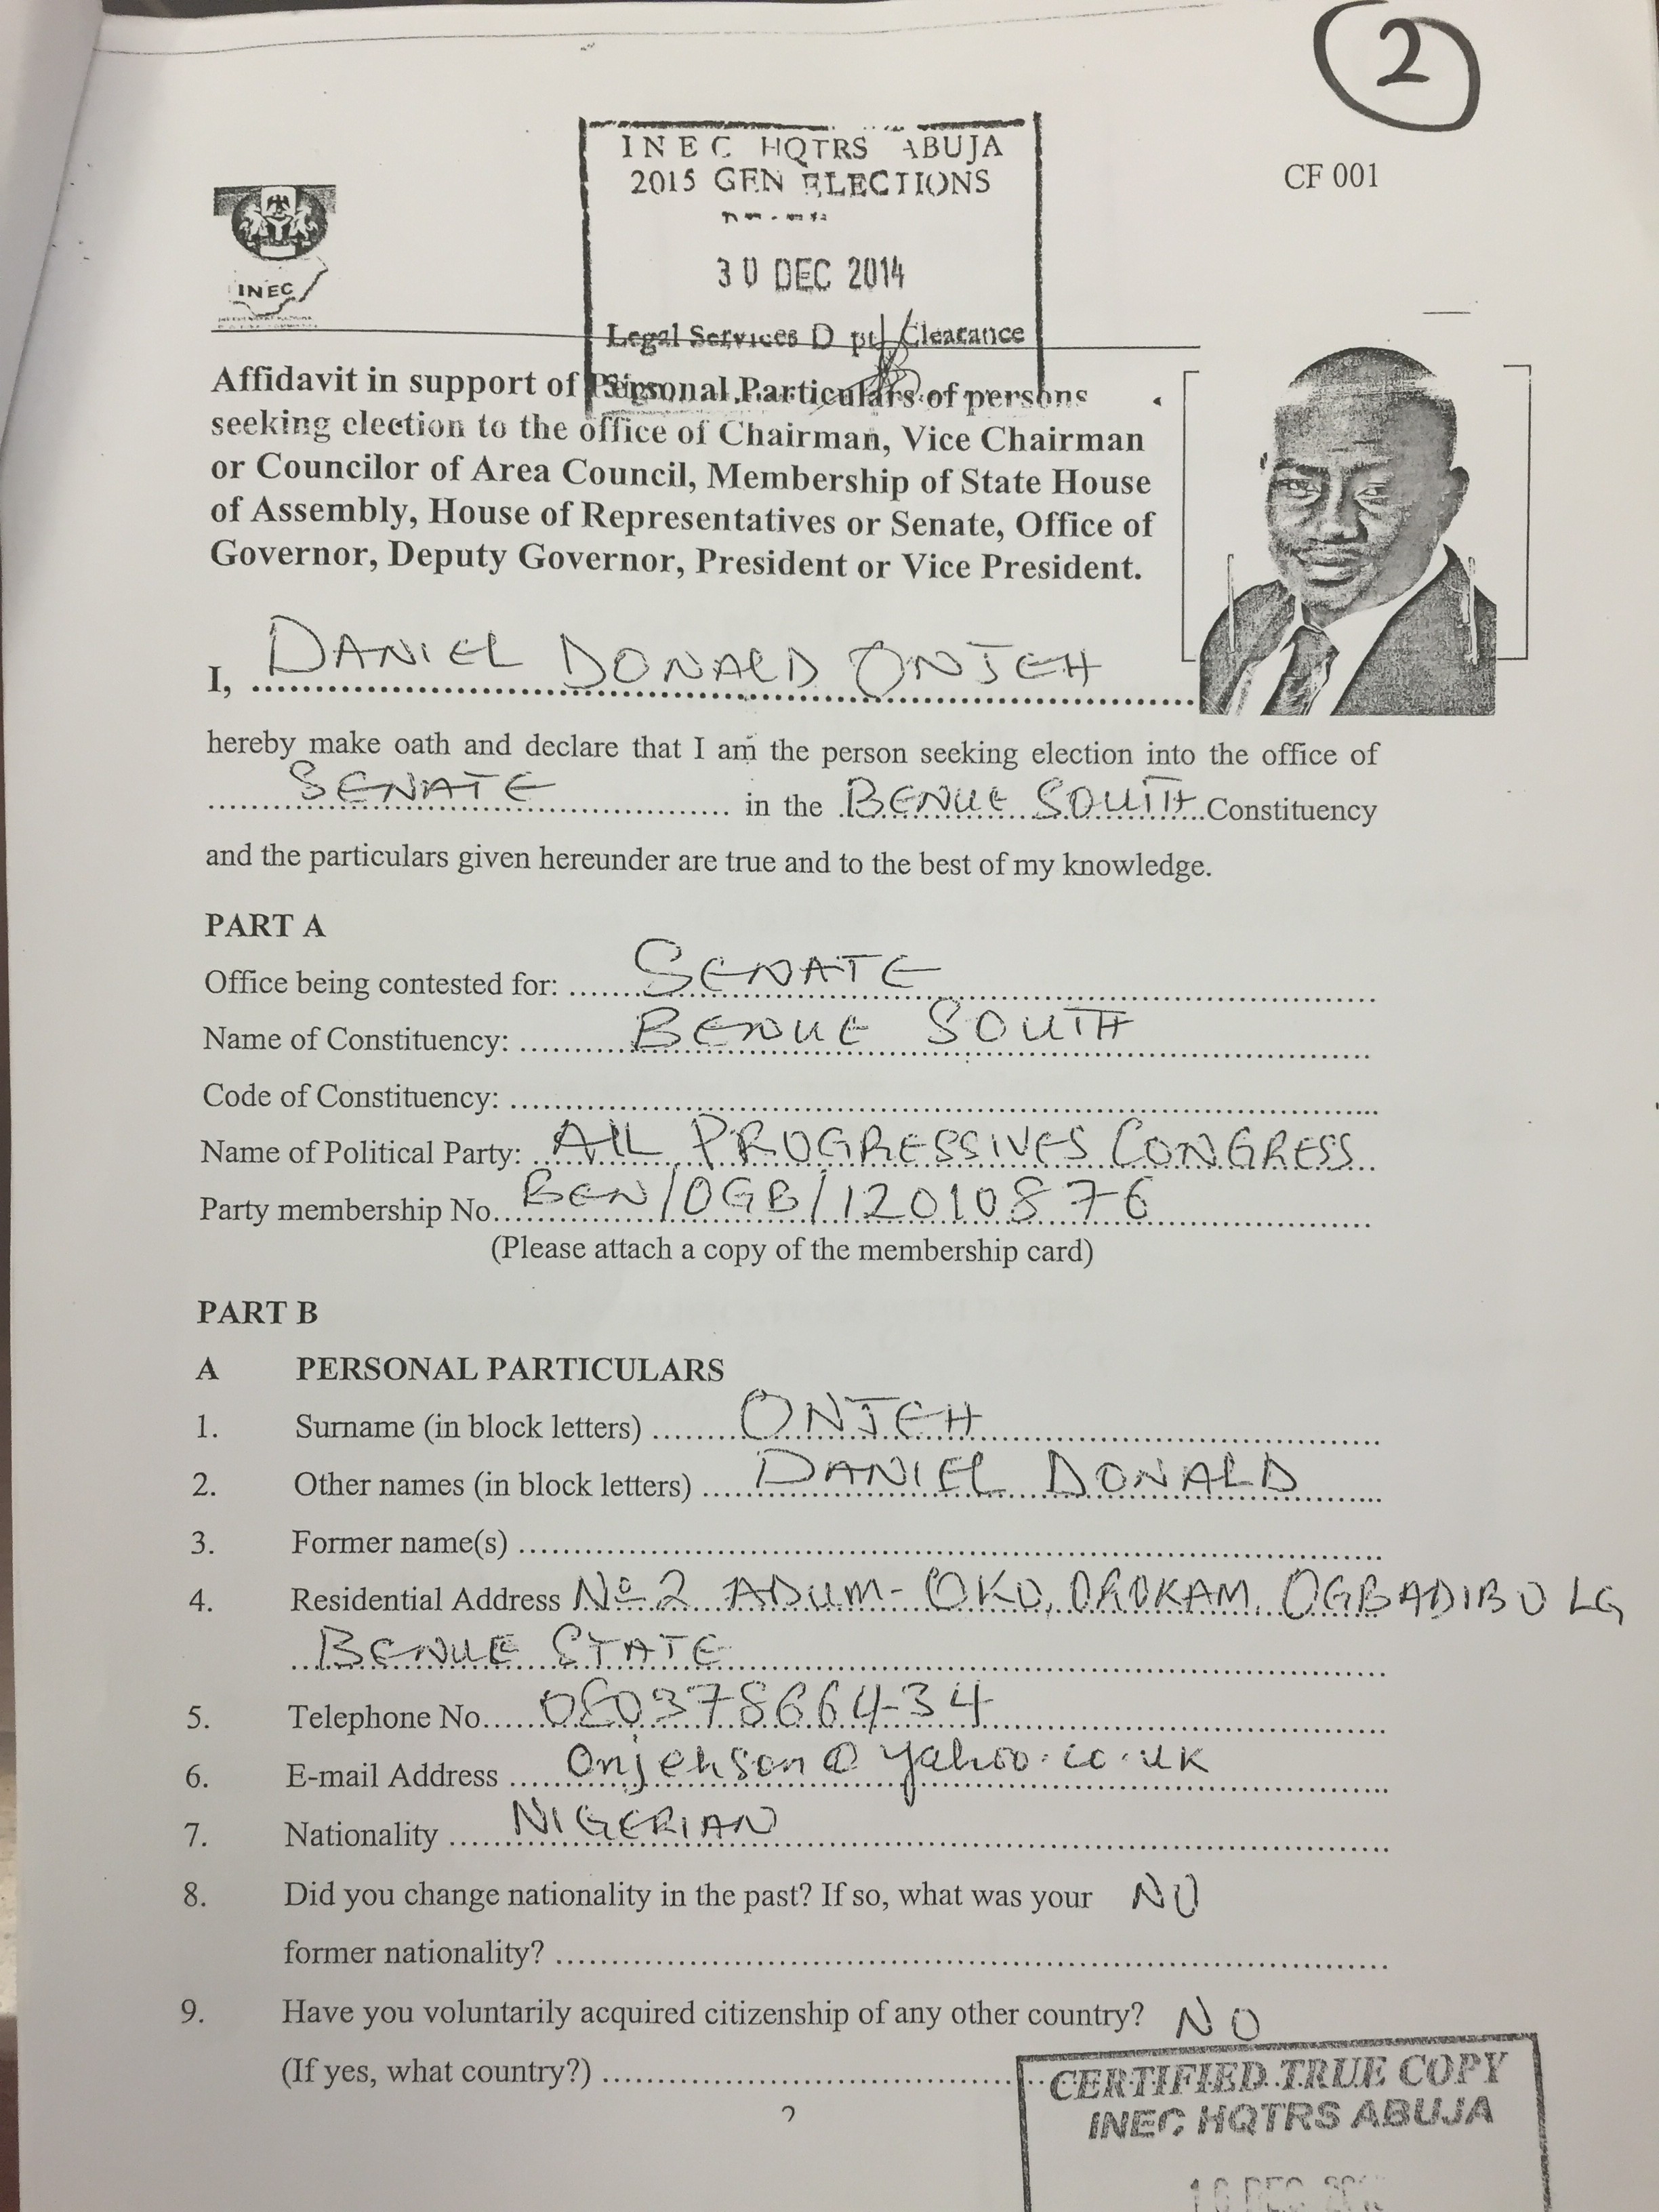 2
INEC HQTRS ABUJA
2015 GEN ELECTIONS
30 DEC 2014
Legal Services Dpt/Clearance
CF 001
INEC
Affidavit in support of Personal Particulars of persons
seeking election to the office of Chairman, Vice Chairman
or Councilor of Area Council, Membership of State House
of Assembly, House of Representatives or Senate, Office of
Governor, Deputy Governor, President or Vice President.
I, DANIEL DONALD ONJEH
hereby make oath and declare that I am the person seeking election into the office of
SENATE in the BENUE SOUTH Constituency
and the particulars given hereunder are true and to the best of my knowledge.
PART A
Office being contested for: SENATE
Name of Constituency: BENUE SOUTH
Code of Constituency:
Name of Political Party: ALL PROGRESSIVES CONGRESS
Party membership No. BEN/OGB/12010876
(Please attach a copy of the membership card)
PART B
A PERSONAL PARTICULARS
1. Surname (in block letters) ONJEH
2. Other names (in block letters) DANIEL DONALD
3. Former name(s)
4. Residential Address No 2 ADUM-OKO, OROKAM, OGBADIBO LG
BENUE STATE
5. Telephone No. 08037866434
6. E-mail Address onjehson@yahoo.co.uk
7. Nationality NIGERIAN
8. Did you change nationality in the past? If so, what was your NO
former nationality?
9. Have you voluntarily acquired citizenship of any other country? NO
(If yes, what country?)
CERTIFIED TRUE COPY
INEC HQTRS ABUJA